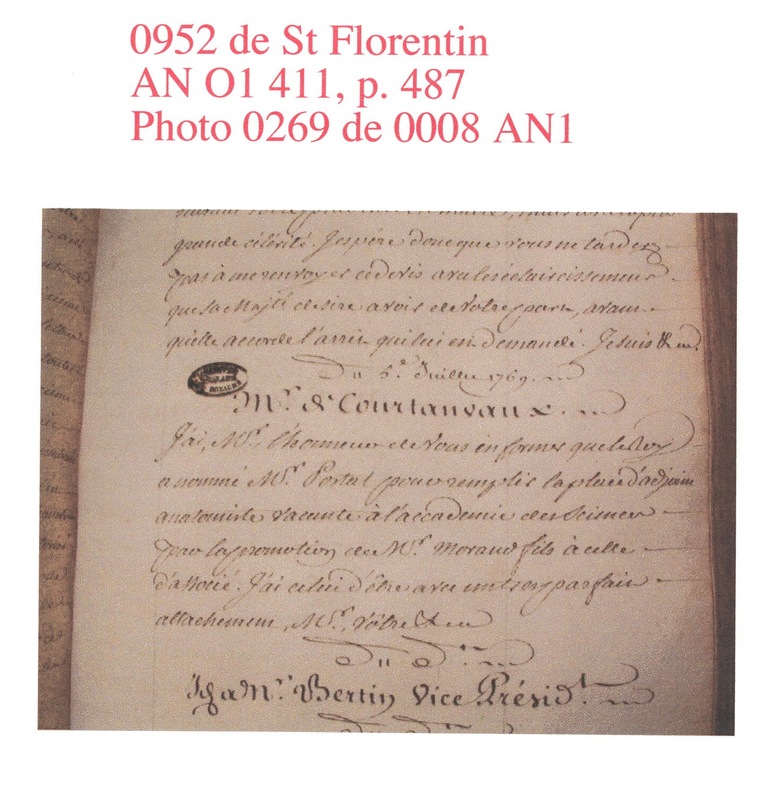 0952 de St Florentin
AN O1 411, p. 487
Photo 0269 de 0008 AN1
grande célérité. J'espére donc que vous ne tarderez
pas à me renvoyer ce devis avec les éclaircissemens
que Sa Majté desire avoir de Votre part, avant
qu'elle accorde l'arrêt qui lui est demandé. Je suis &c.
Du 5e Juillet 1769.
Mr. de Courtanvaux.
J'ai, Mr., l'honneur de Vous informer que le Roy
a nommé Mr. Portal pour remplir la place d'adjoint
anatomiste vacante à l'accademie des Sciences
par la promotion de Mr. Morand fils à celle
d'associé. J'ai celui d'être avec un très parfait
attachement, Mr., Vôtre &c
Du d.
Id a Mr. Bertin Vice Présidt.